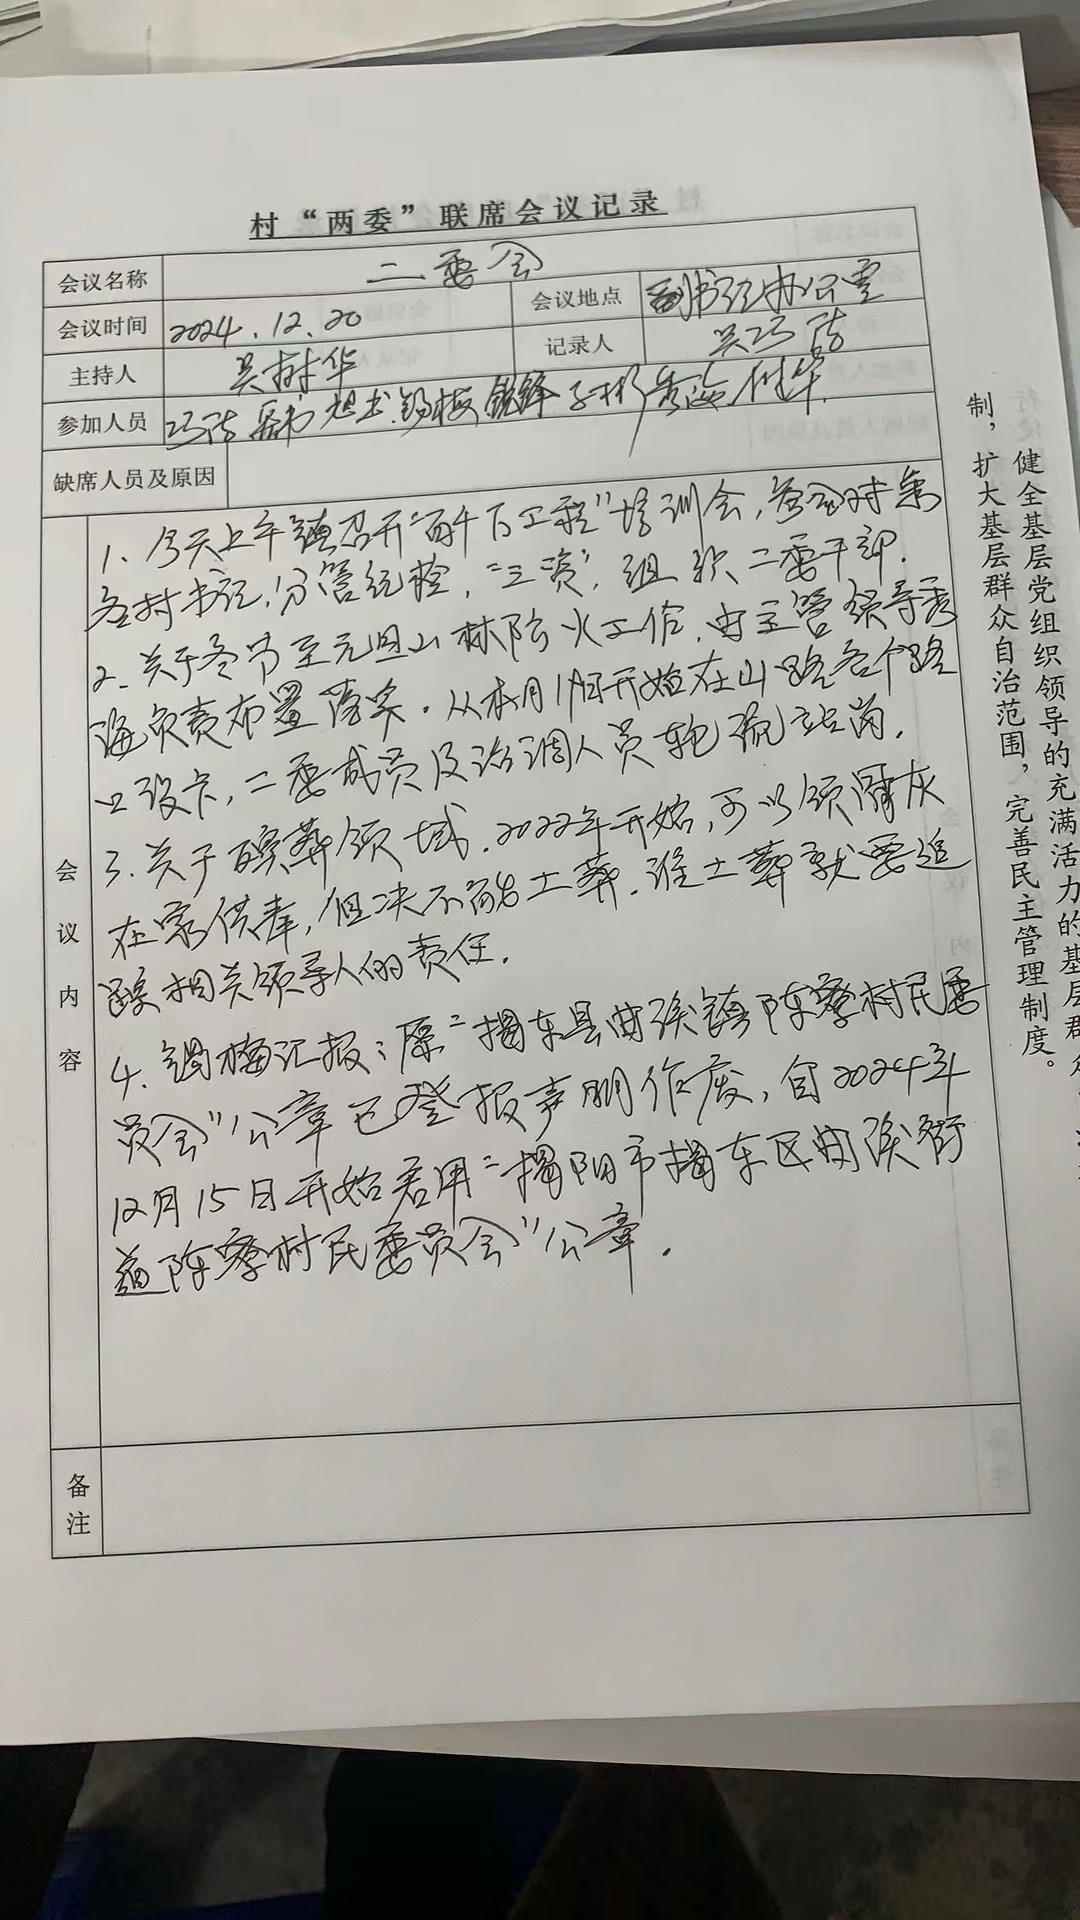 村“两委”联席会议记录
会议名称 二委会
会议时间 2024.12.20 会议地点 副书记办公室
主持人 吴树华 记录人 吴巧
参加人员 巧 旭 锐锋 秀海 树华.
缺席人员及原因
会议内容
1、今天上午镇召开“百千万工程”培训会,参会对象
各村书记,分管纪检,“三资”,组织二委干部.
2、关于冬节至元旦山林防火工作,由主管领导秀
海负责布置落实.从本月19日开始在山路各个路
口设卡,二委成员及治调人员轮流站岗.
3、关于殡葬领域.2022年开始,可以领骨灰
在家供奉,但决不能土葬.谁土葬就要追
踪相关领导人的责任.
4、锡梅汇报:原“揭东县曲溪镇陈寮村民委
员会”公章已登报声明作废,自2024年
12月15日开始启用“揭阳市揭东区曲溪街
道陈寮村民委员会”公章.
备注
健全基层党组织领导的充满活力的基层群众
制,扩大基层群众自治范围,完善民主管理制度。